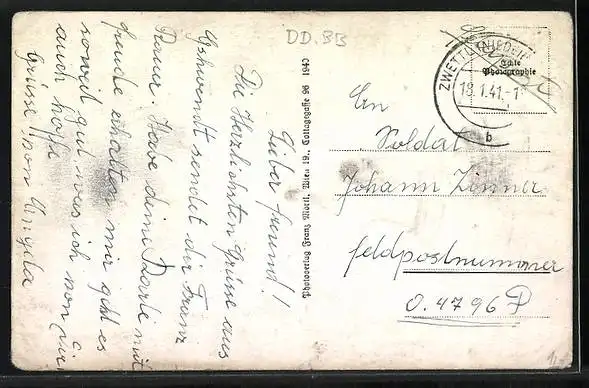 Lieber freund!
Die Herzlichsten Grüse aus
Gschwendt sendet dir Franz
Habe deine Karte mit
freude erhalten mir geht es
soweit gut was ich von dir
auch hoffe
Grüsse von Angela
Photoverlag Franz Mörtl, Wien 19, Cottagegasse 96 1940
DD.BB
Echte
Photographie
ZWETTL (NIEDERD
18.1.41.-1
b
An
Soldat
Johann Zinner
feldpostnummer
0.4796 P